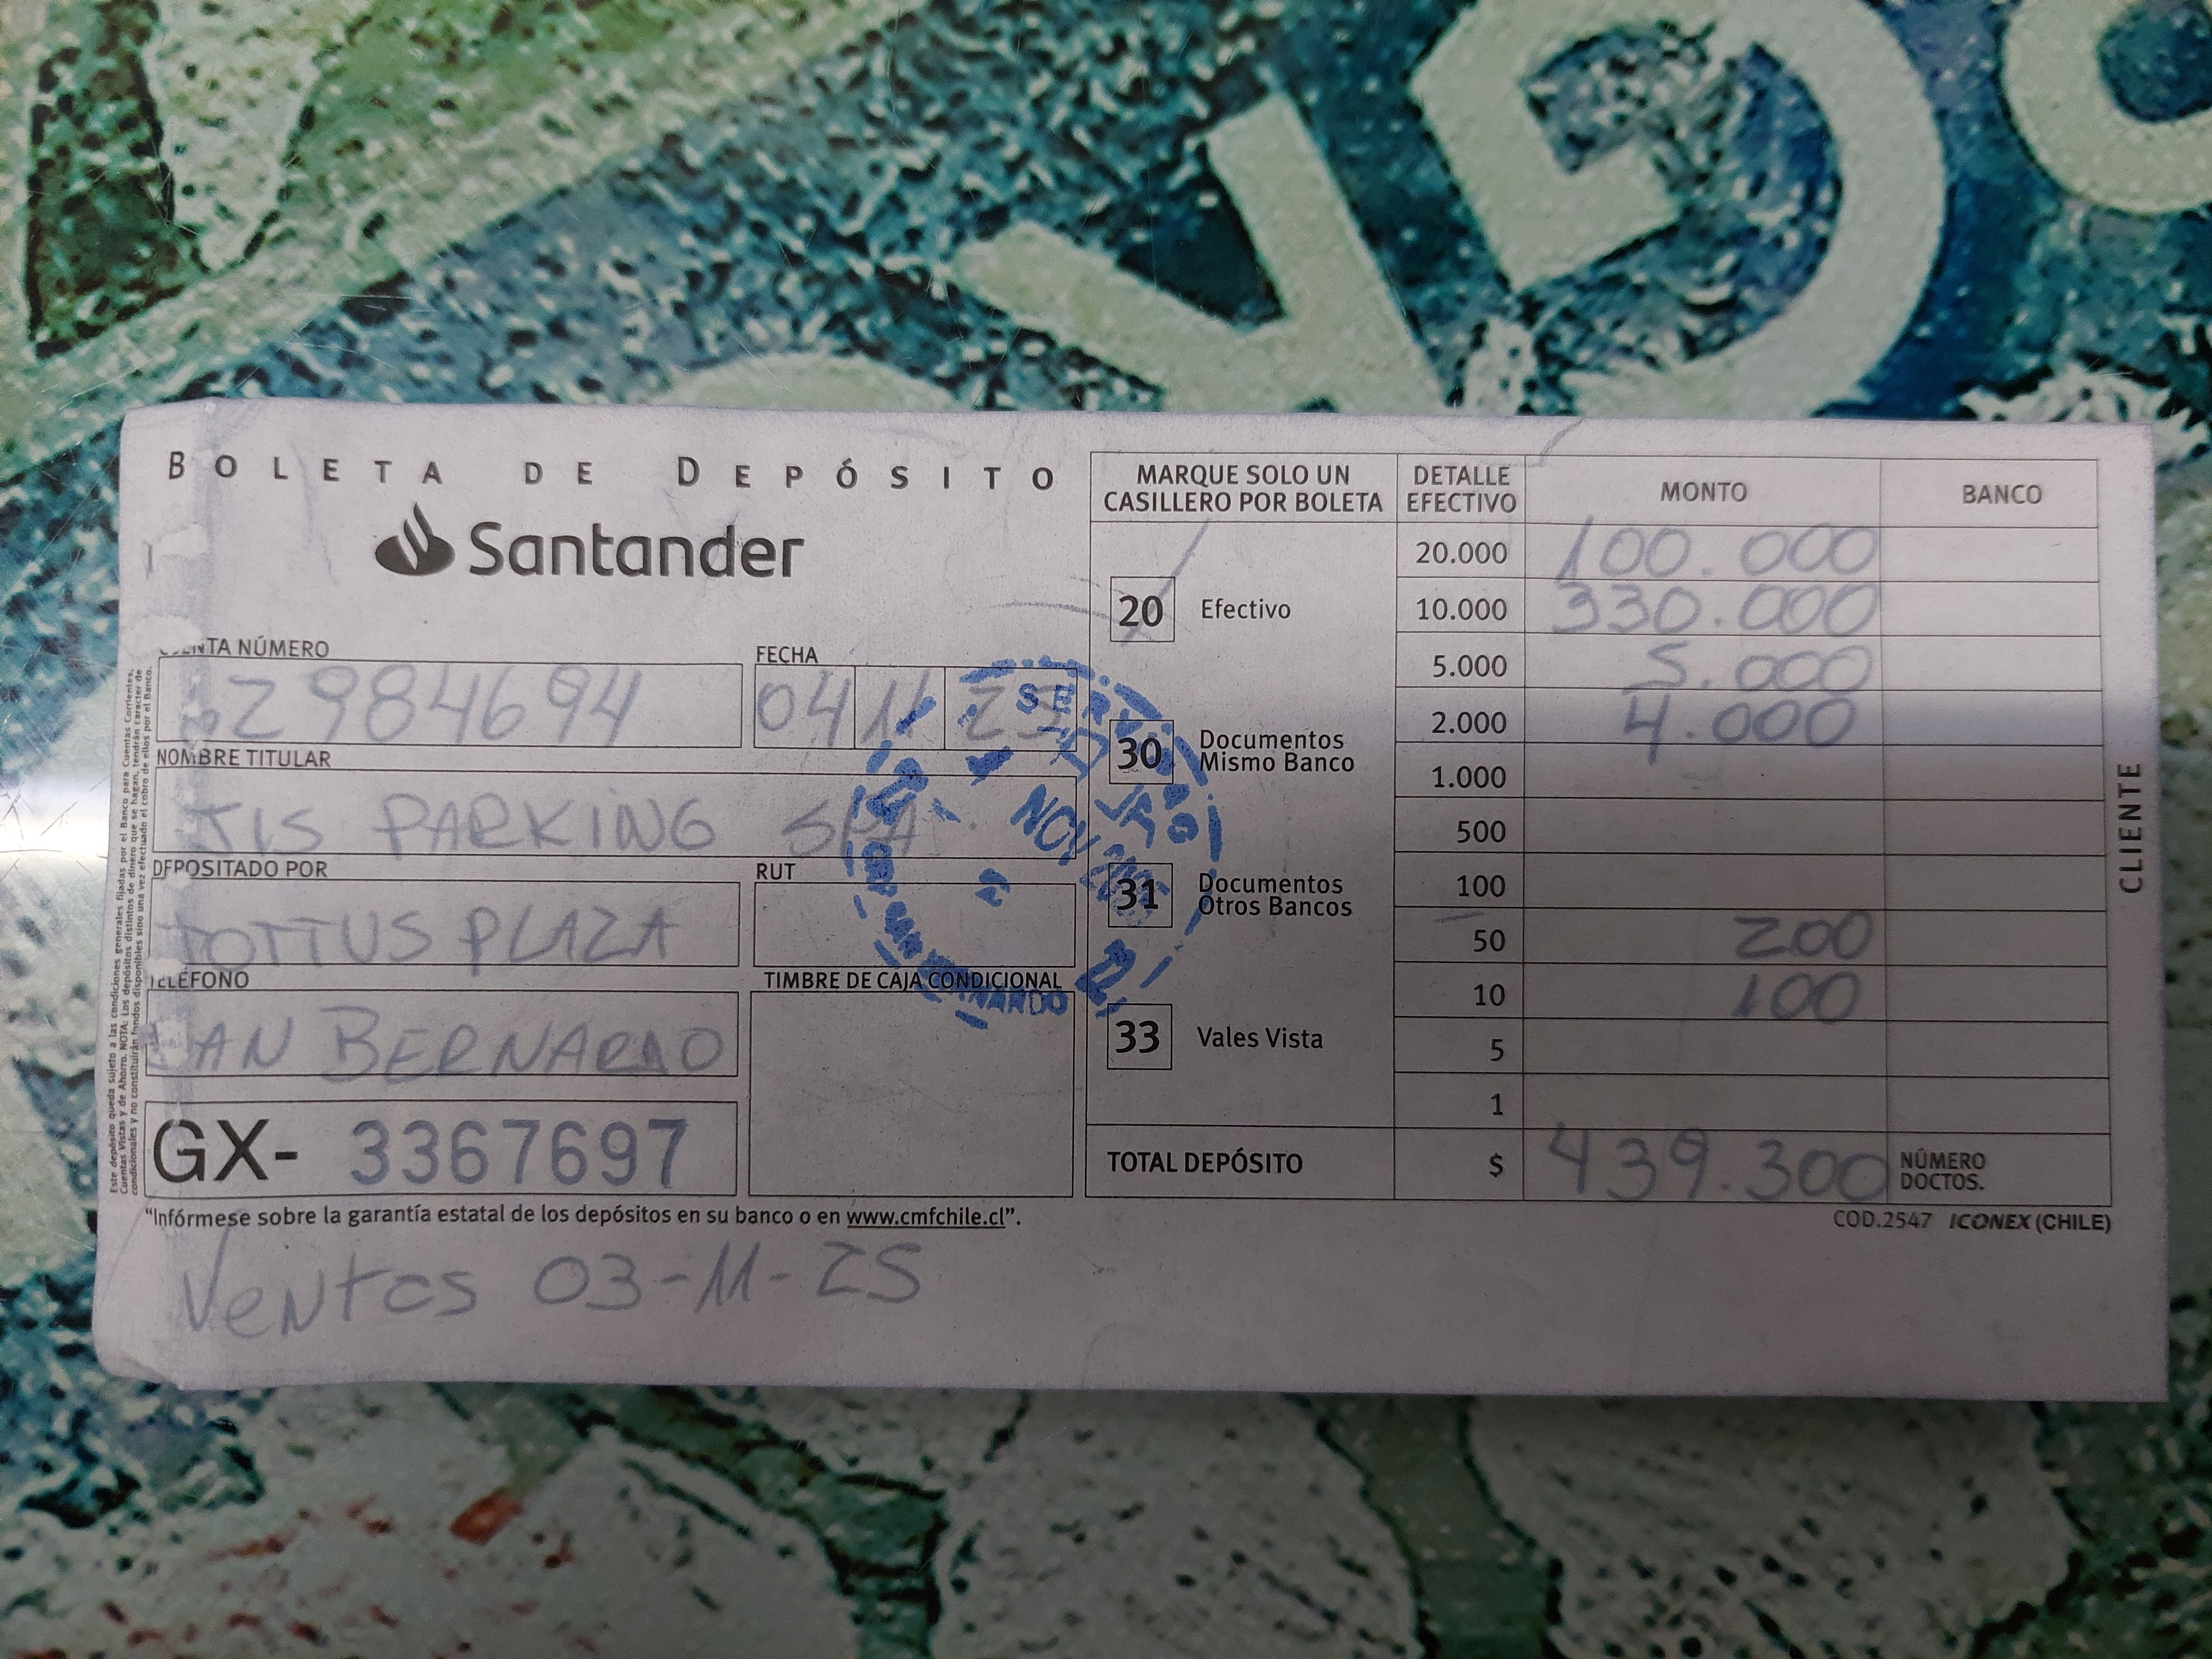 BOLETA DE DEPÓSITO
Santander
CUENTA NÚMERO
FECHA
2984694
04 11 25
NOMBRE TITULAR
JIS PARKING SPA
DEPOSITADO POR
RUT
TOTTUS PLAZA
TELÉFONO
TIMBRE DE CAJA CONDICIONAL
SAN BERNARDO
GX- 3367697
"Infórmese sobre la garantía estatal de los depósitos en su banco o en www.cmfchile.cl".
Ventas 03-11-25
MARQUE SOLO UN
CASILLERO POR BOLETA
20 Efectivo
30 Documentos
Mismo Banco
31 Documentos
Otros Bancos
33 Vales Vista
DETALLE EFECTIVO MONTO BANCO
20.000 100.000
10.000 330.000
5.000 5.000
2.000 4.000
1.000
500
100
50 200
10 100
5
1
TOTAL DEPÓSITO $ 439.300 NÚMERO DOCTOS.
COD.2547 ICONEX (CHILE)
CLIENTE
Este depósito queda sujeto a las condiciones generales fijadas por el Banco para Cuentas Corrientes,
Cuentas Vistas y de Ahorro. NOTA: Los depósitos distintos de dinero que se hagan, tendrán carácter de
condicionales y no constituirán fondos disponibles sino una vez efectuado el cobro de ellos por el Banco.
NOV 2025